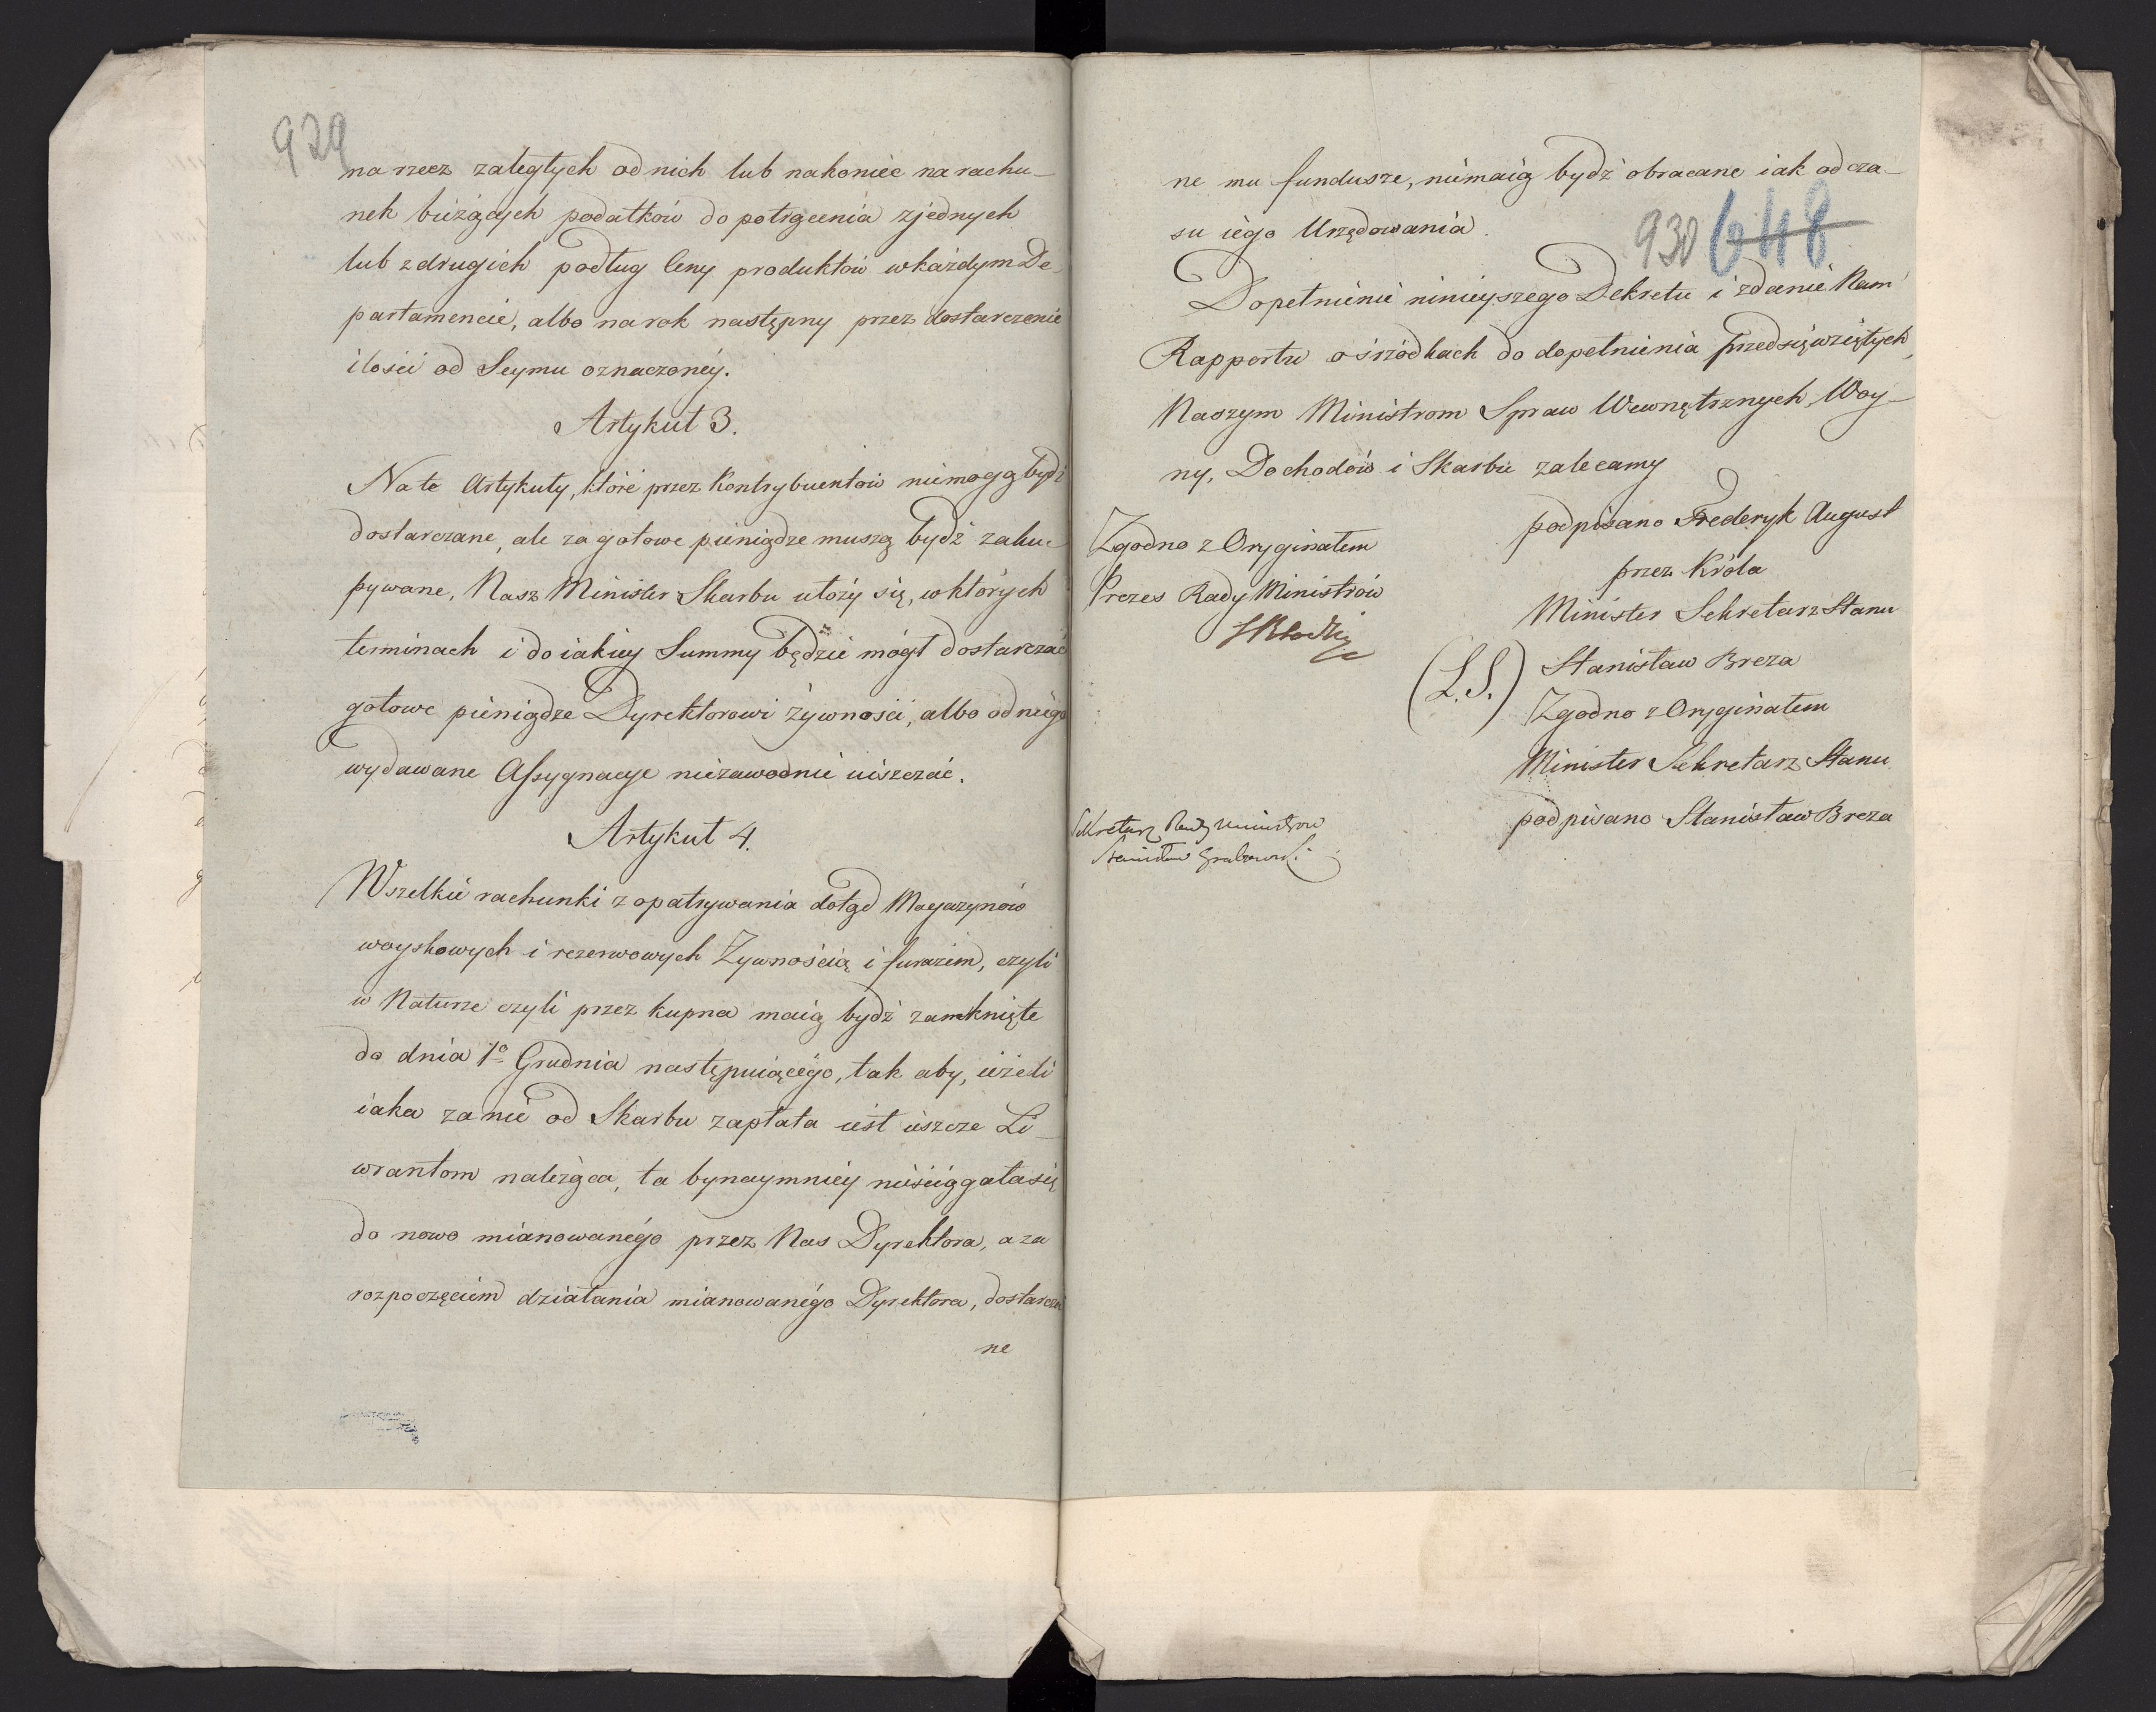 929
na rzecz zaległych od nich lub nakoniec na rachu-
nek bieżących podatków do potrącenia zjednych
lub z drugich podług Ceny produktów w każdym De-
partamencie, albo na rok następny przez dostarczenie
ilości od Seymu oznaczonéy.
Artykuł 3.
Na te Artykuły, które przez Kontrybuentów niemogą bydź
dostarczane, ale za gotowe pieniądze muszą bydź zaku-
pywane, Nasz Minister Skarbu ułoży się, w których
terminach i do iakiey Summy będzie mógł dostarczać
gotowe pieniądze Dyrektorowi żywności, albo od niego
wydawane Assygnacye niezawodnie uiszczać.
Artykuł 4.
Wszelkie rachunki z opatrywania dotąd Magazynów
woyskowych i rezerwowych Żywnością i furażem, czyli
w Naturze czyli przez kupna maią bydź zamknięte
do dnia 1º Grudnia następuiącégo, tak aby, ieżeli
iaka za nie od Skarbu zapłata iest ieszcze Li-
wrantom należąca, ta bynaymniéy nieściągała się
do nowo mianowanégo przez Nas Dyrektora, a za
rozpoczęciem działania mianowanégo Dyrektora, dostarczo
ne
ne mu fundusze, niemaią bydź obracane iak od cza-
su iégo Urzędowania.
930 648
Dopełnienie ninieyszego Dekretu i zdanie Nam
Rapportu o śrzódkach do dopełnienia przedsięwziętych,
Naszym Ministrom Spraw Wewnętrznych, Woy-
ny, Dochodów i Skarbu zalecamy
podpisano Frederyk August
przez Króla
Minister Sekretarz Stanu
(L.S.) Stanisław Breza
Zgodno z Oryginałem
Minister Sekretarz Stanu
podpisano Stanisław Breza
Zgodno z Oryginałem
Prezes Rady Ministrów
Sekretarz Rady Ministrow
Stanisław Grabowski